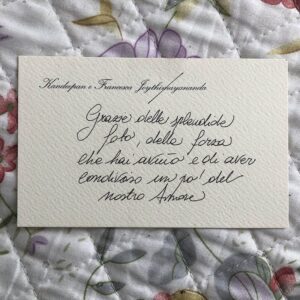 Kandeepan e Francesca
Grazie delle splendide
foto, della forza
che hai avuto e di aver
condiviso un po' del
nostro Amore